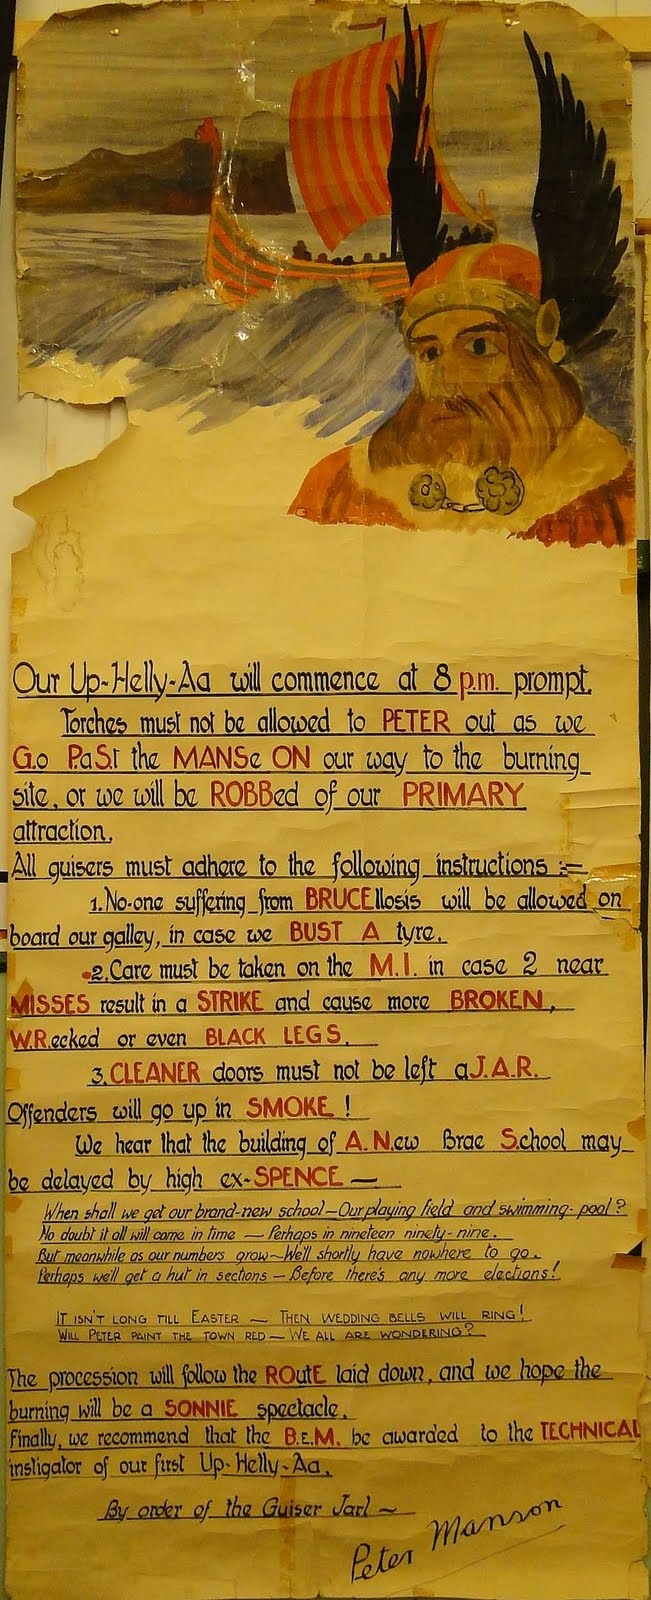 Our Up-Helly-Aa will commence at 8 p.m. prompt.
Torches must not be allowed to PETER out as we
G.o P.aS.t the MANSe ON our way to the burning
site, or we will be ROBBed of our PRIMARY
attraction.
All guisers must adhere to the following instructions :=
1. No-one suffering from BRUCEllosis will be allowed on
board our galley, in case we BUST A tyre.
2. Care must be taken on the M.I. in case 2 near
MISSES result in a STRIKE and cause more BROKEN,
W.R.ecked or even BLACK LEGS.
3. CLEANER doors must not be left aJ.A.R.
Offenders will go up in SMOKE !
We hear that the building of A. N.ew Brae S.chool may
be delayed by high ex-SPENCE —
When shall we get our brand-new school — Our playing field and swimming-pool ?
No doubt it all will come in time — Perhaps in nineteen ninety-nine.
But meanwhile as our numbers grow — We'll shortly have nowhere to go.
Perhaps we'll get a hut in sections — Before there's any more elections!
IT ISN'T LONG TILL EASTER — THEN WEDDING BELLS WILL RING!
WILL PETER PAINT THE TOWN RED — WE ALL ARE WONDERING?
The procession will follow the ROutE laid down, and we hope the
burning will be a SONNIE spectacle.
Finally, we recommend that the B.E.M. be awarded to the TECHNICAL
instigator of our first Up-Helly-Aa.
By order of the Guiser Jarl ~
Peter Manson